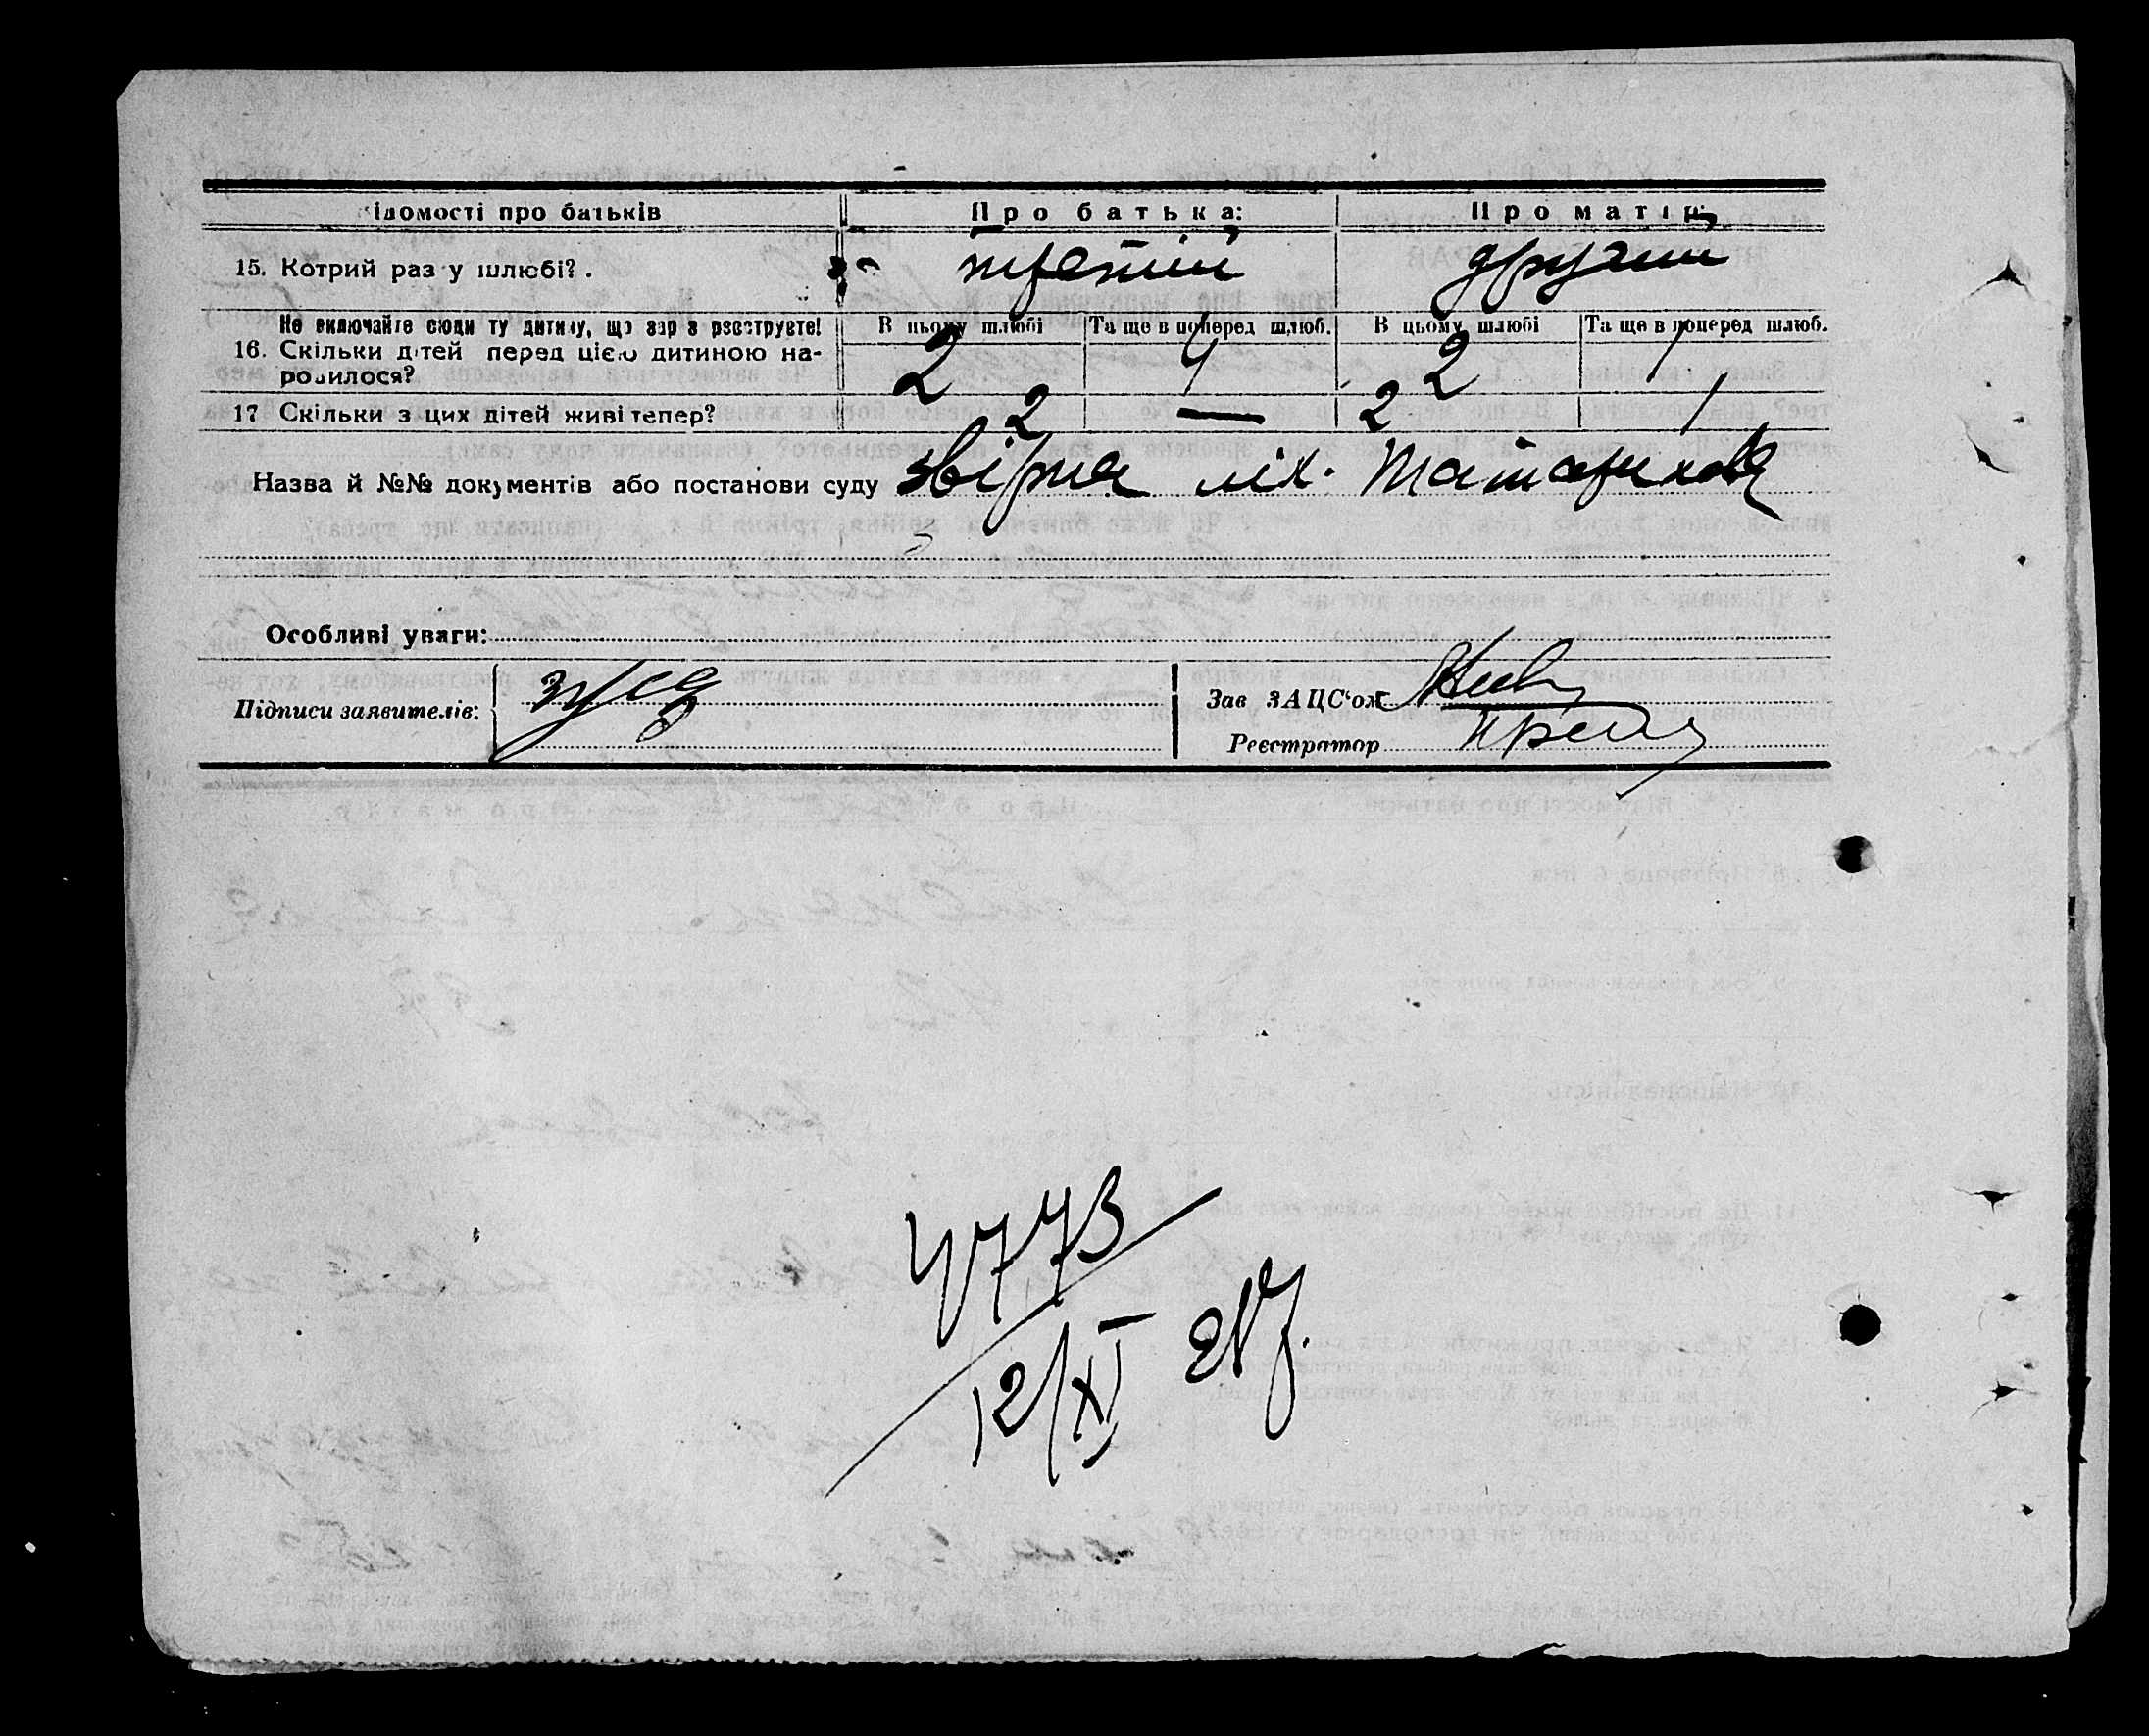 Відомості про батьків Про батька: Про матір:
15. Котрий раз у шлюбі? третій другий
Не включайте сюди ту дитину, що зараз реєструєте! В цьому шлюбі Та ще в поперед шлюб. В цьому шлюбі Та ще в поперед шлюб.
16. Скільки дітей перед цією дитиною на- 2 4 2 1
родилося?
17 Скільки з цих дітей живі тепер? 2 — 2 1
Назва й №№ документів або постанови суду звірна лік.
Особливі уваги:
Підписи заявителів:
Зав ЗАЦС'ом
Реєстратор
4773
12/XI